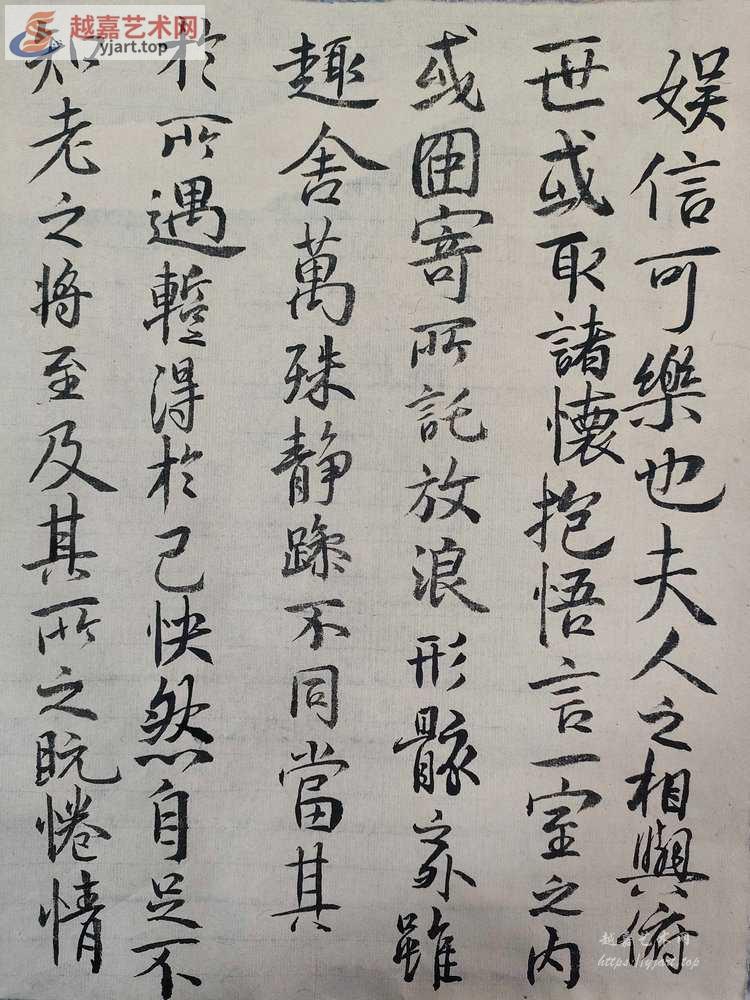 越嘉艺术网
yjart.top
娱信可樂也夫人之相與俯
一世或取諸懷抱悟言一室之内
或因寄所託放浪形骸之外雖
趣舍萬殊静躁不同當其
於所遇蹔得於己怏然自足不
知老之将至及其所之既惓情
越嘉艺术网
https://yjart.top